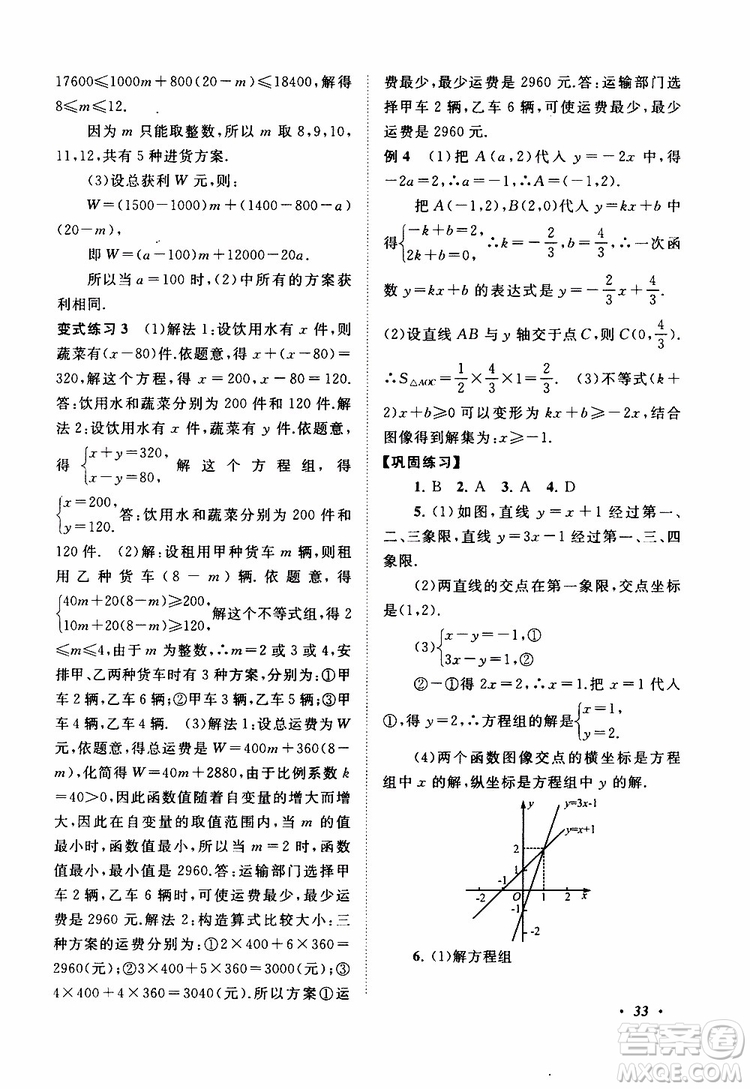 17600≤1000m+800(20-m)≤18400,解得
8≤m≤12.
因为 m 只能取整数,所以 m 取 8,9,10,
11,12,共有 5 种进货方案.
(3)设总获利 W 元,则:
W=(1500-1000)m+(1400-800-a)
(20-m),
即 W=(a-100)m+12000-20a.
所以当 a=100 时,(2)中所有的方案获
利相同.
变式练习 3 (1)解法 1:设饮用水有 x 件,则
蔬菜有(x-80)件.依题意,得 x+(x-80)=
320,解这个方程,得 x=200.∴x-80=120.
答:饮用水和蔬菜分别为 200 件和 120 件.解
法 2:设饮用水有 x 件,蔬菜有 y 件.依题意,
得 {x+y=320, x-y=80, 解这个方程组,得
{x=200, y=120. 答:饮用水和蔬菜分别为 200 件和
120 件. (2)解:设租用甲种货车 m 辆,则租
用乙种货车(8-m)辆.依题意,得
{40m+20(8-m)≥200, 10m+20(8-m)≥120, 解这个不等式组,得 2
≤m≤4.∵m 为整数,∴m=2 或 3 或 4,安
排甲、乙两种货车时有 3 种方案,分别为:①甲
车 2 辆,乙车 6 辆;②甲车 3 辆,乙车 5 辆;③甲
车 4 辆,乙车 4 辆. (3)解法 1:设总运费为 W
元,依题意,得总运费为 W=400m+360(8-
m),化简得 W=40m+2880,由于比例系数 k
=40>0,因此函数值随着自变量的增大而增
大,故在自变量的取值范围内,当 m 的值
最小时,函数值最小.故当 m 的值最小为 2 时,函数
值最小,最小值是 2960.答:运输部门选择甲
车 2 辆,乙车 6 辆,可使运费最少,最少
运费是 2960 元.解法 2:构造算式比较大小:三
种方案的运费分别为:①2×400+6×360=
2960(元);②3×400+5×360=3000(元);③
4×400+4×360=3040(元).所以方案①运
费最少,最少运费是 2960 元.答:运输部门选
择甲车 2 辆,乙车 6 辆,可使运费最少,最少
运费是 2960 元.
例 4 (1)把 A(a,2)代人 y=-2x 中,得
-2a=2,∴a=-1,∴A=(-1,2).
把 A(-1,2),B(2,0)代人 y=kx+b 中
得{-k+b=2, 2k+b=0, ∴k=-2/3,b=4/3,∴一次函
数 y=kx+b 的表达式是 y=-2/3x+4/3.
(2)设直线 AB 与 y 轴交于点 C,则 C(0,4/3).
∴S△AOC=1/2×4/3×1=2/3. (3)不等式(k+
2)x+b≥0 可以变形为 kx+b≥-2x,结合
图像得到解集为:x≥-1.
【巩固练习】
1. B 2. A 3. A 4. D
5. (1)如图,直线 y=x+1 经过第一、
二、三象限,直线 y=3x-1 经过第一、三、四
象限.
(2)两直线的交点在第一象限,交点坐标
是(1,2).
(3){x-y=-1,① 3x-y=1,②
②-①得 2x=2,∴x=1.把 x=1 代人
①,得 y=2,∴方程组的解是{x=1, y=2.
(4)两个函数图像交点的横坐标是方程
组中 x 的解,纵坐标是方程组中 y 的解.
y
y=3x-1
y=x+1
2
1
-2 -1 O 1 2 x
-1
-2
6. (1)解方程组
· 33 ·
答案圈
MXQE.COM